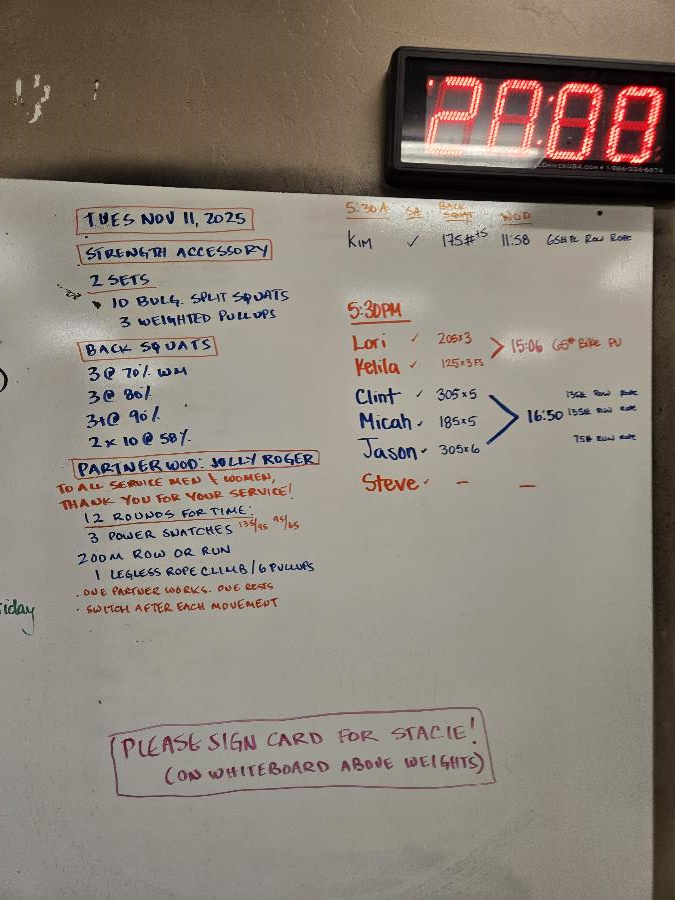 2A:00
TUES NOV 11, 2025
STRENGTH ACCESSORY
2 SETS
10 BULG. SPLIT SQUATS
3 WEIGHTED PULLUPS
BACK SQUATS
3 @ 70% WM
3 @ 80%
3+ @ 90%
2 x 10 @ 58%
PARTNER WOD: JOLLY ROGER
TO ALL SERVICE MEN & WOMEN,
THANK YOU FOR YOUR SERVICE!
12 ROUNDS FOR TIME:
3 POWER SNATCHES 135/95 95/65
200M ROW OR RUN
1 LEGLESS ROPE CLIMB / 6 PULLUPS
· ONE PARTNER WORKS. ONE RESTS
· SWITCH AFTER EACH MOVEMENT
5:30A SA BACK SQUAT WOD
KIM ✓ 175# 11:58 65# ROW ROPE
5:30PM
Lori ✓ 205x3
Kelila ✓ 125x3
15:06 65# Bike PU
Clint ✓ 305x5 135# ROW ROPE
Micah ✓ 185x5 135# ROW ROPE
Jason ✓ 305x6 75# ROW ROPE
16:50
Steve ✓ – –
riday
PLEASE SIGN CARD FOR STACIE!
(ON WHITEBOARD ABOVE WEIGHTS)